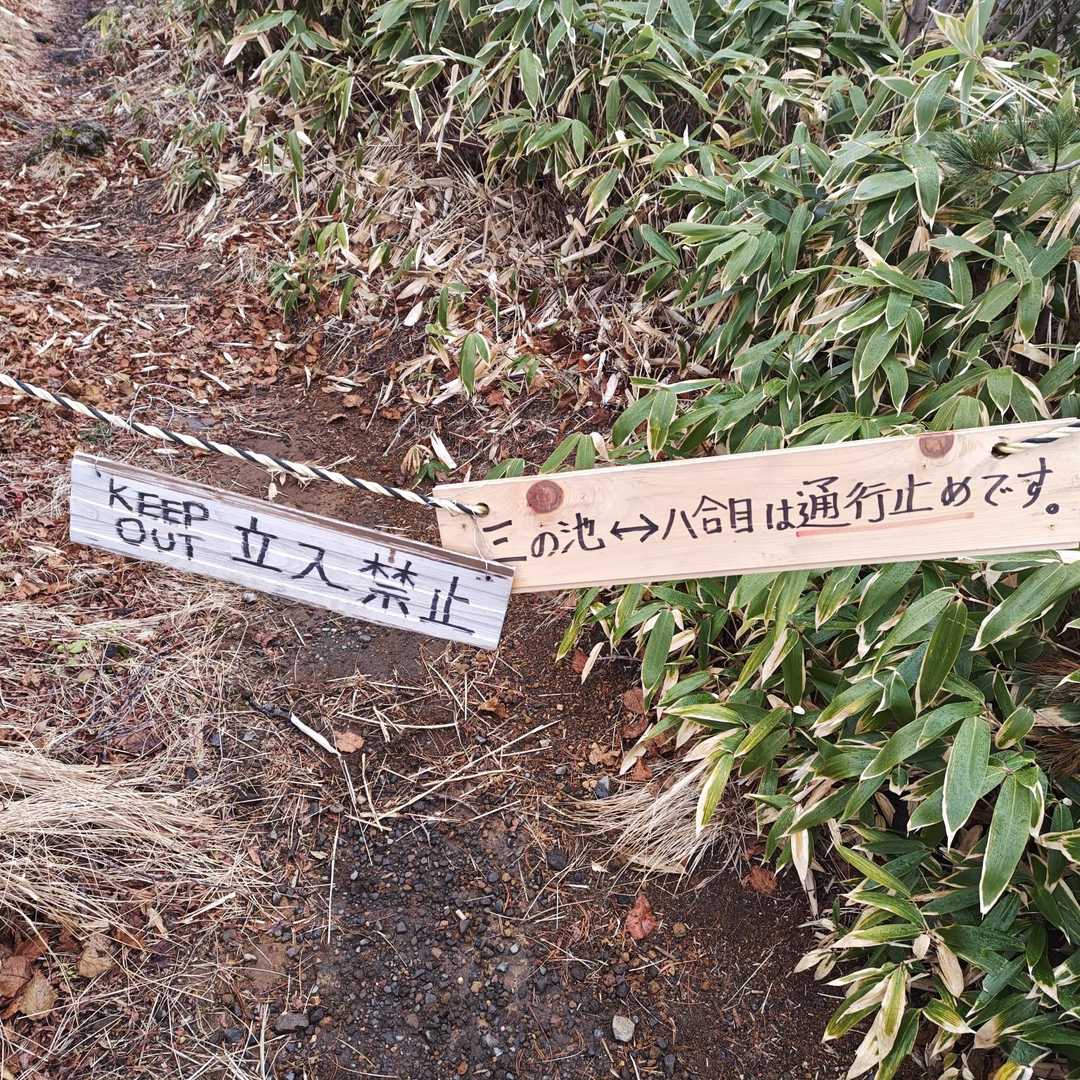 KEEP
OUT
立入禁止
三の池↔八合目は通行止めです。